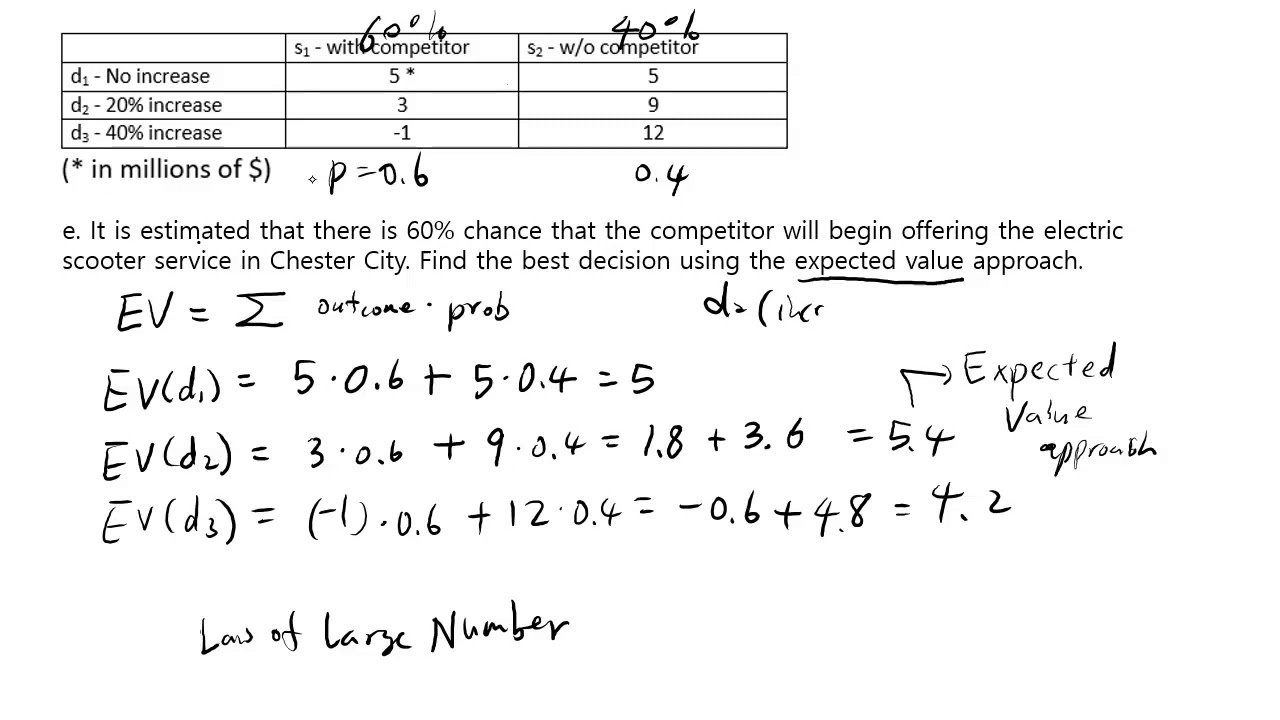 60% 40%
s₁ - with competitor s₂ - w/o competitor
d₁ - No increase 5 * 5
d₂ - 20% increase 3 9
d₃ - 40% increase -1 12
(* in millions of $) p = 0.6 0.4
e. It is estimated that there is 60% chance that the competitor will begin offering the electric
scooter service in Chester City. Find the best decision using the expected value approach.
EV = Σ outcome · prob d₂ (incr
EV(d₁) = 5 · 0.6 + 5 · 0.4 = 5
EV(d₂) = 3 · 0.6 + 9 · 0.4 = 1.8 + 3.6 = 5.4
→ Expected
Value
approach
EV(d₃) = (-1) · 0.6 + 12 · 0.4 = -0.6 + 4.8 = 4.2
Law of Large Number